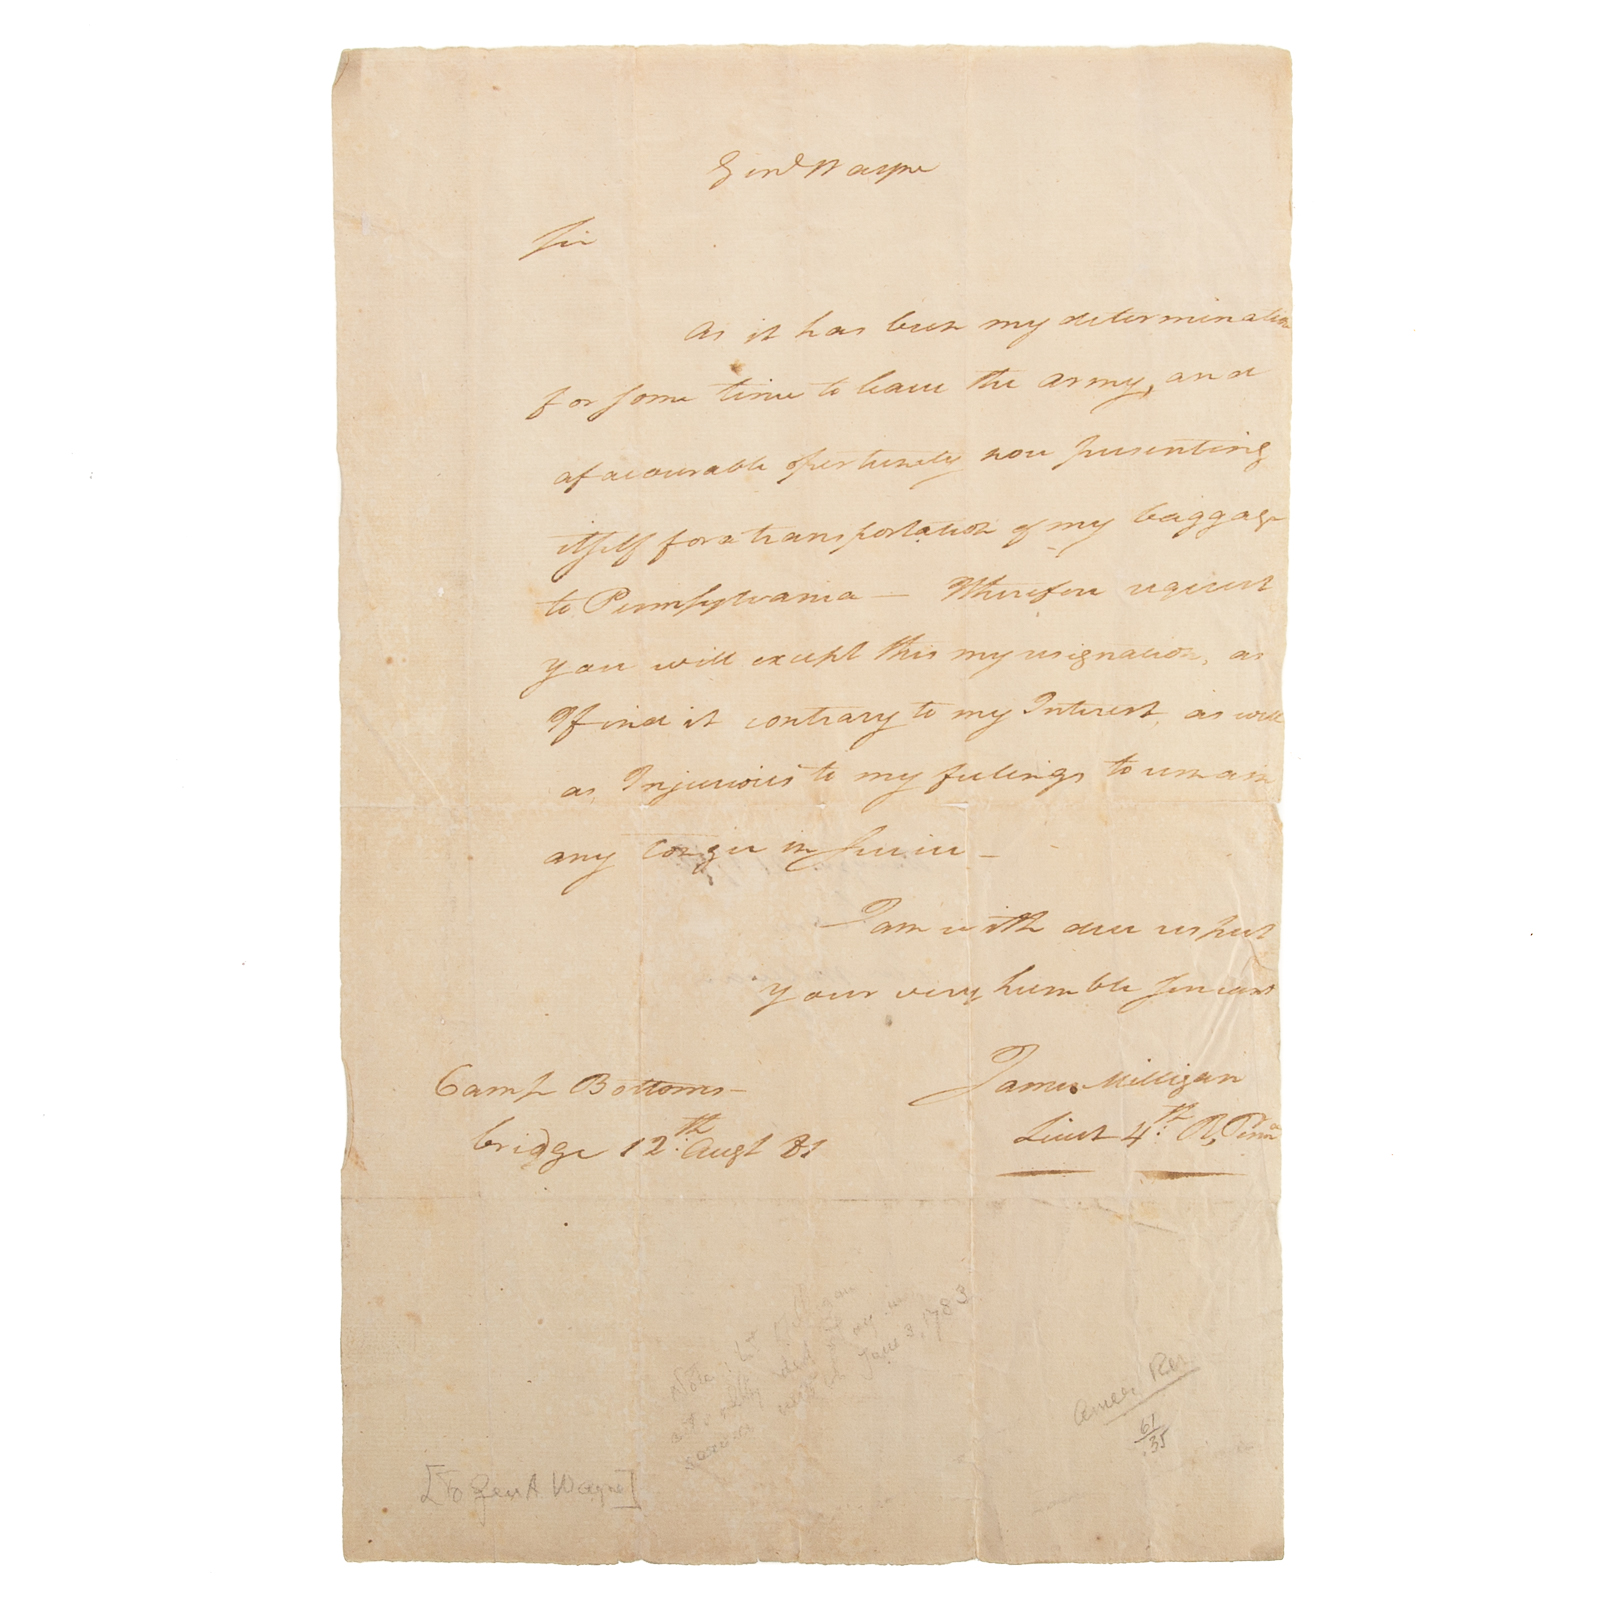 Genl Wayne
Sir
As it has been my determination
for some time to leave the army, and
a favourable opertunity now presenting
itself for a transportation of my baggage
to Pennsylvania — Therefore request
you will except this my resignation, as
I find it contrary to my Interest, as well
as Injurious to my feelings to remain
any longer in service —
I am with due respect
your very humble servant
James Milligan
Lieut 4th. R, Penna
Camp Bottoms—
bridge 12th. Augt 81
Note Milligan
did
June 3, 1783
Amer. Rev
61
35
[To Gen A Wayne]